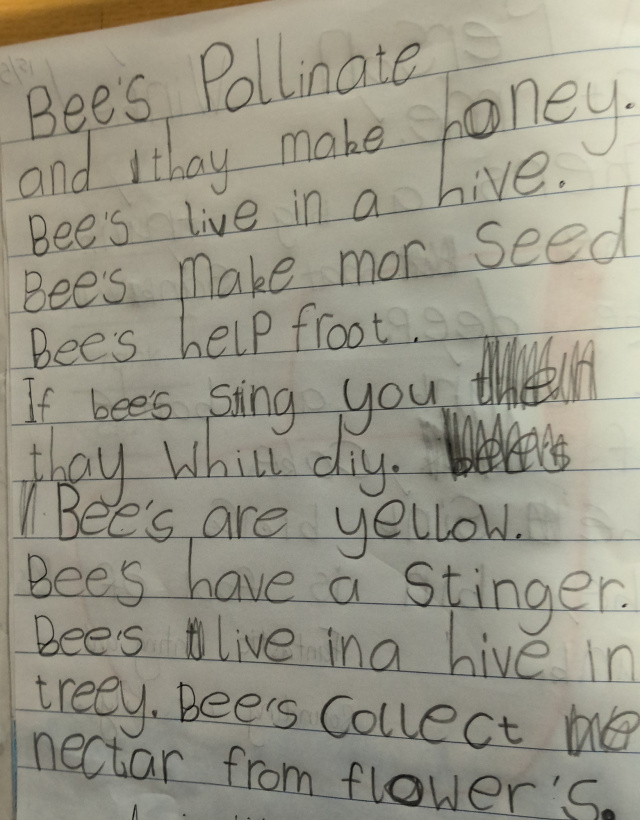 Bee's Pollinate
and thay make honey.
Bee's live in a hive.
Bee's make mor seed
Bee's help froot.
If bee's sting you then
thay whill diy.
Bee's are yellow.
Bees have a Stinger.
Bee's live ina hive in
treey. Bee's Collect
nectar from flower's.